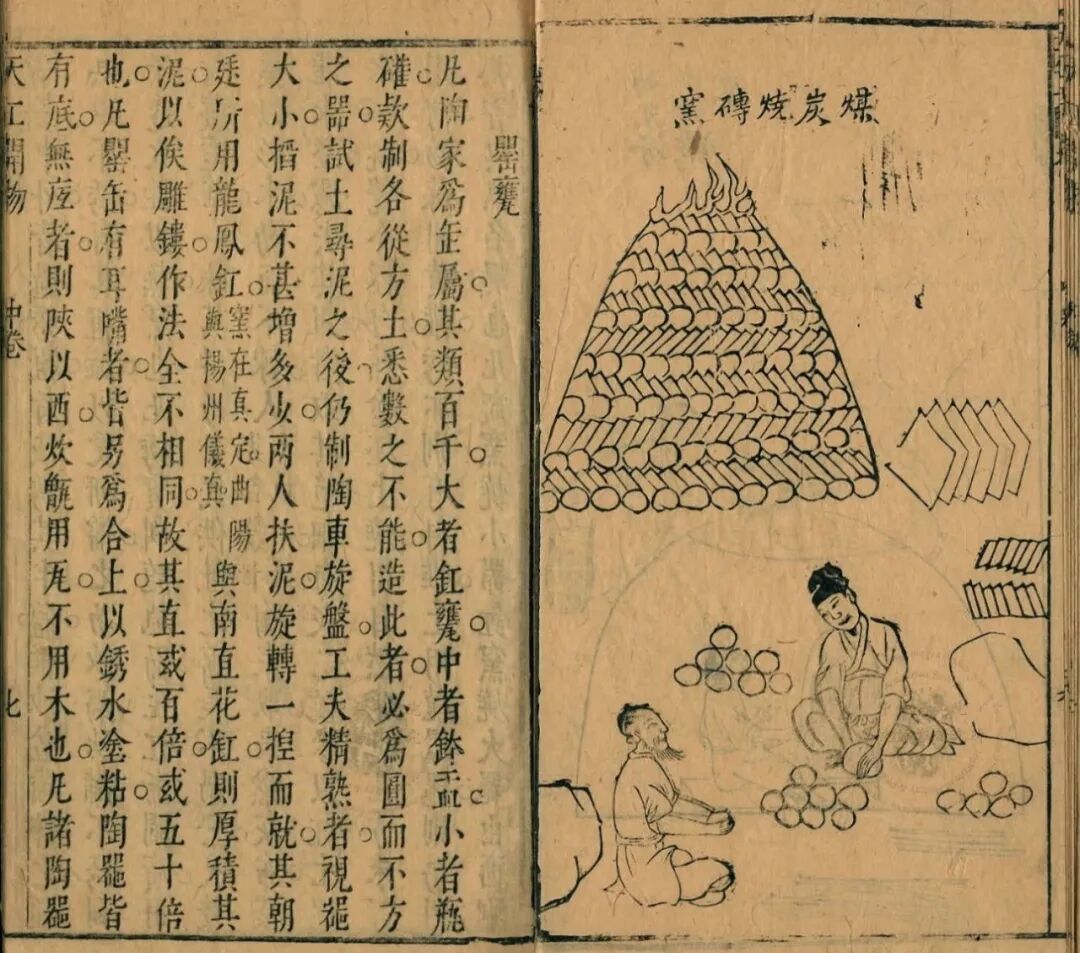 煤炭燒磚窯
罌甕
凡陶家爲缶屬其類百千大者缸甕中者鉢盂小者瓶
礶款制各從方土悉數之不能造此者必爲圓而不方
之器試土尋泥之後仍制陶車旋盤工夫精熟者視器
大小掐泥不甚增多少兩人扶泥旋轉一揑而就其朝
廷所用龍鳳缸窯在真定曲陽與揚州儀真與南直花缸則厚積其
泥以俟雕鏤作法全不相同故其直或百倍或五十倍
也凡罌缶有耳嘴者皆另爲合上以銹水塗粘陶器皆
有底無底者則陝以西炊甑用瓦不用木也凡諸陶器
天工開物 中卷